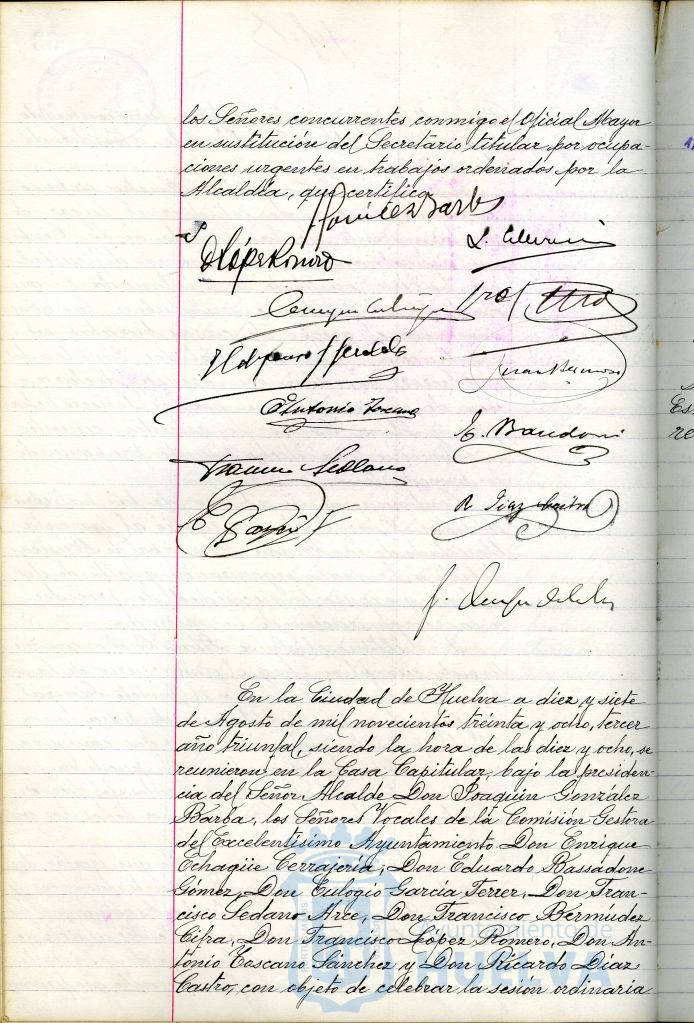 los Señores concurrentes conmigo el Oficial Mayor
en sustitución del Secretario titular por ocupa-
ciones urgentes en trabajos ordenados por la
Alcaldía, que certifico.
González Barba
E. Bassadone
R. Díaz Castro
Antonio Toscano
Francisco Sedano
En la Ciudad de Huelva a diez y siete
de Agosto de mil novecientos treinta y ocho, tercer
año triunfal, siendo la hora de las diez y ocho, se
reunieron en la Casa Capitular, bajo la presiden-
cia del Señor Alcalde Don Joaquín González
Barba, los Señores Vocales de la Comisión Gestora
del Excelentísimo Ayuntamiento Don Enrique
Echagüe Cerrajería, Don Eduardo Bassadone
Gómez, Don Eulogio García Ferrer, Don Fran-
cisco Sedano Arce, Don Francisco Bermudez
Cifra, Don Francisco López Romero, Don An-
tonio Toscano Sánchez y Don Ricardo Díaz
Castro, con objeto de celebrar la sesión ordinaria
Ayuntamiento de
HUELVA